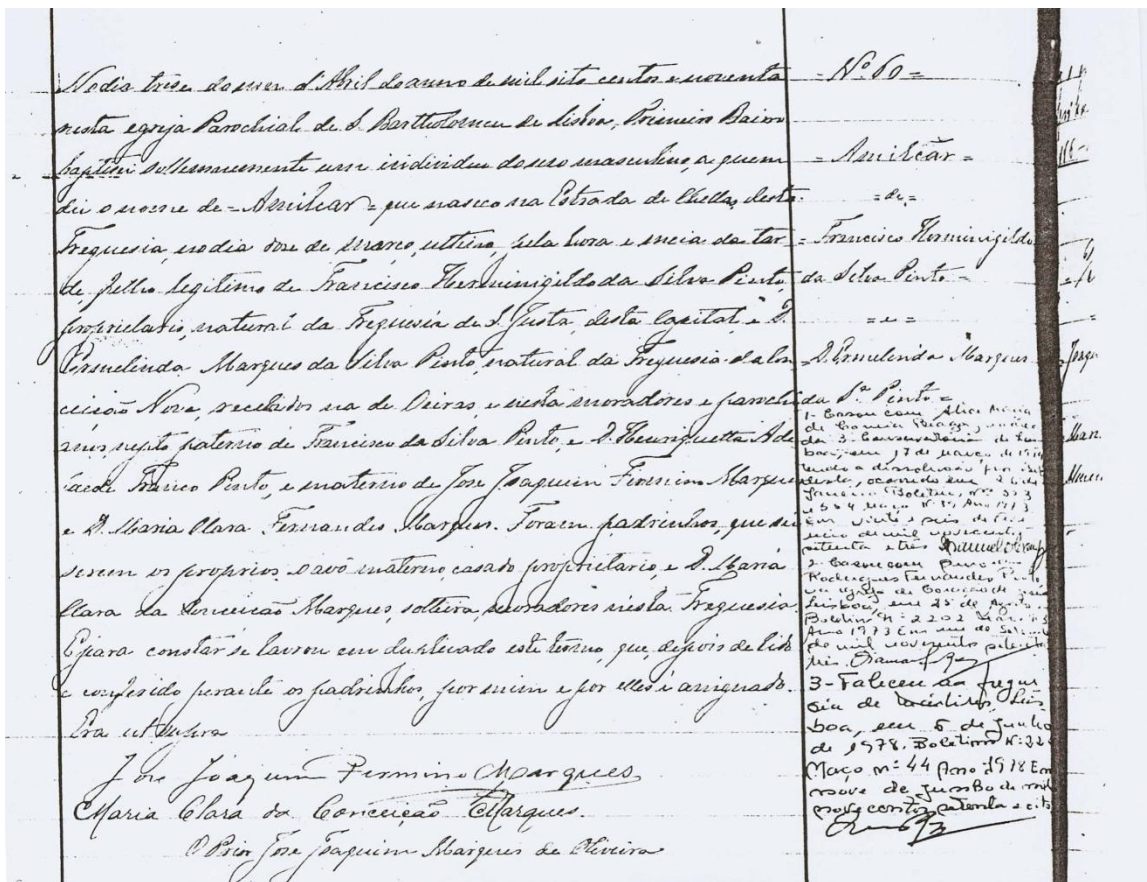 No dia treze do mez d'Abril do anno de mil oito centos e noventa
nesta egreja Parochial de S. Bartholomeu de Lisboa, Primeiro Bairro
baptisei sollemnemente um individuo do sexo masculino, a quem
dei o nome de = Amilcar = que nasceo na Estrada de Chellas, desta
Freguesia, no dia doze de março ultimo, pela hora e meia da tar
de filho legitimo de Francisco Herminigildo da Silva Pinto,
proprietario, natural da Freguesia de S. Justa, desta Capital e D.
Ermelinda Marques da Silva Pinto, natural da Freguesia da Con
ceição Nova, recebidos na de Oeiras e nesta moradores e parochi
anos, neto paterno de Francisco da Silva Pinto, e D. Henriquetta Ade
laide Franco Pinto, e materno de Jose Joaquim Firmino Marques
e D. Maria Clara Fernandes Marques. Foram padrinhos, que sei
serem os proprios, o avô materno, casado, proprietario, e D. Maria
Clara da Conceição Marques, solteira, moradores nesta Freguesia.
E para constar se lavrou em duplicado este termo, que, depois de lido
e conferido perante os padrinhos, por mim e por elles é assignado.
Era ut supra
Jose Joaquim Firmino Marques
Maria Clara da Conceição Marques.
O Prior Jose Joaquim Marques de Oliveira
= Nº 60 =
= Amilcar =
= de =
= Francisco Herminigildo
da Silva Pinto =
= e =
= D. Ermelinda Marques
da Sª Pinto =
1- Casou com Alice Maria
de
da 3ª Conservatoria de Lis
boa, em 17 de março de
tendo a dissolução por
ocorrido em 24 de
Janeiro Boletins nºs 553
e 554 Maço nº Ano 1973
Em vinte e seis de
de mil novecentos
setenta e três
2- Casou com
Rodrigues Fernandes Pinto
na igreja de Coração de Jesus
Lisboa, em 25 de Agosto
Boletim Nº 2202 Maço
Ano 1973 Em um de
de mil novecentos setenta
três.
3- Faleceu na fregue
sia de Lis
boa, em 5 de Junho
de 1978. Boletim Nº
Maço nº 44 Ano 1978 Em
nove de Junho de mil
novecentos setenta e oito